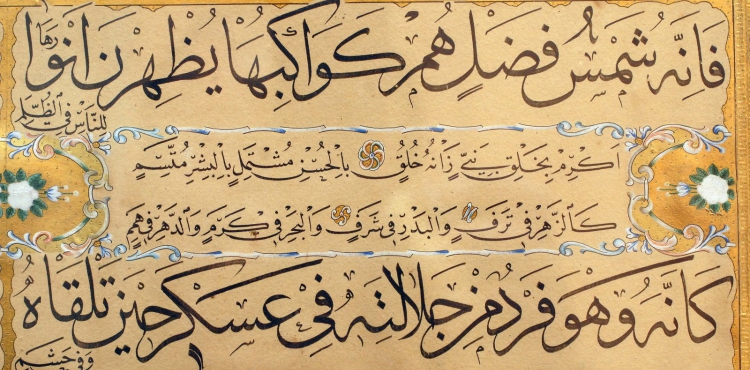 فَاِنَّهُ شَمْسُ فَضْلٍ هُمْ كَوَاكِبُهَا يُظْهِرْنَ اَنْوَارَهَا
لِلنَّاسِ فِي الظُّلَمِ
اَكْرِمْ بِخَلْقِ نَبِيٍّ زَانَهُ خُلُقٌ بِالْحُسْنِ مُشْتَمِلٍ بِالْبِشْرِ مُتَّسِمِ
كَالزَّهْرِ فِي تَرَفٍ وَالْبَدْرِ فِي شَرَفٍ وَالْبَحْرِ فِي كَرَمٍ وَالدَّهْرِ فِي هِمَمِ
كَاَنَّهُ وَهُوَ فَرْدٌ مِنْ جَلَالَتِهِ فِي عَسْكَرٍ حِينَ تَلْقَاهُ
وَفِي حَشَمِ